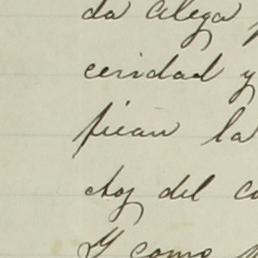 da alega
ceridad y
fican la
del
Y como